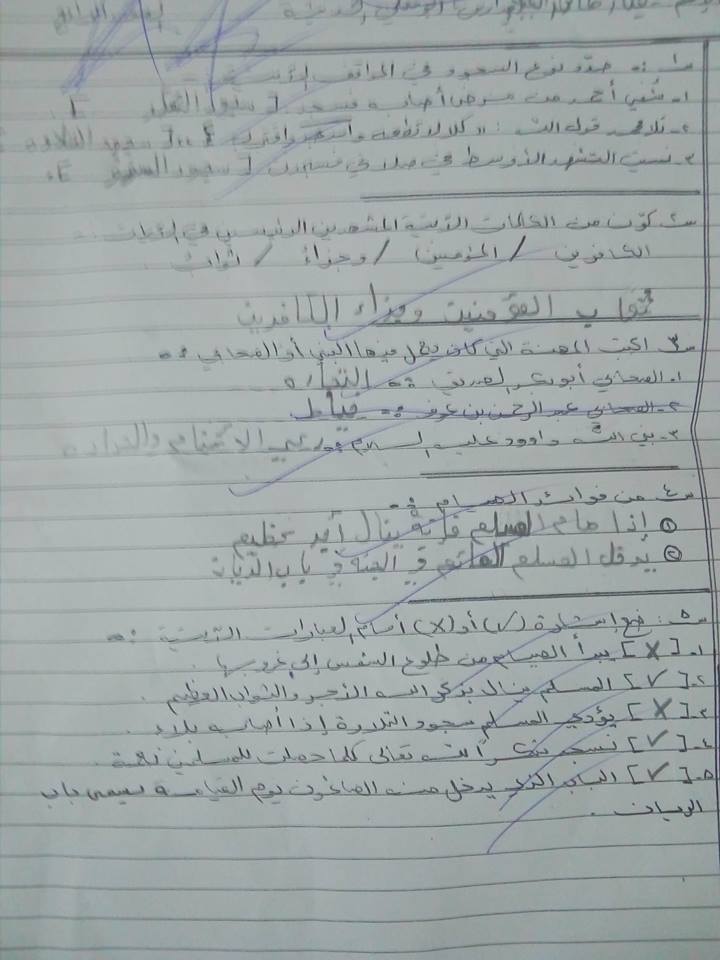 س١: حدد نوع السجود في المواقف الآتية
١- شفي أحمد من مرض أصابه فسجد [ سجود الشكر ]
٢- تلاهد قول الله: "كلا لا تطعه واسجد واقترب" [ سجود التلاوة ]
٣- نسيت التشهد الأوسط في صلاتي فسجدت [ سجود السهو ].
س٢ كوّن من الكلمات الآتية المشهدين الرئيسين في الآيات :-
الكافرين / المؤمنين / وجزاء / ثواب
ثواب المؤمنين وجزاء الكافرين
س٣ اكتب المهنة التي كان يعمل فيها النبي أو الصحابي :-
١- الصحابي أبو بكر الصديق :- التجاره
٢- الصحابي عبد الرحمن بن عوف :- خياط
٣- نبي الله داوود عليه السلام :- رعي الاغنام والحداده
س٤ من فوائد الصيام :-
① اذا صام المسلم فإنه ينال أجر عظيم
② يدخل المسلم الصائم في الجنة في باب الريان
س٥: ضع إشارة (✓) أو (X) أمام العبارات الآتية :-
١- [X] يبدأ الصيام من طلوع الشمس إلى غروبها .
٢- [✓] المسلم ينال بذكر الله الأجر والثواب العظيم .
٣- [X] يؤدي المسلم سجود التلاوة إذا أصابه بلاء .
٤- [✓] نسجد شكراً لله تعالى كلما حصلت للمسلمين نعمة .
٥- [✓] الباب الذي يدخل منه الصائمون يوم القيامة يسمى باب
الريان .